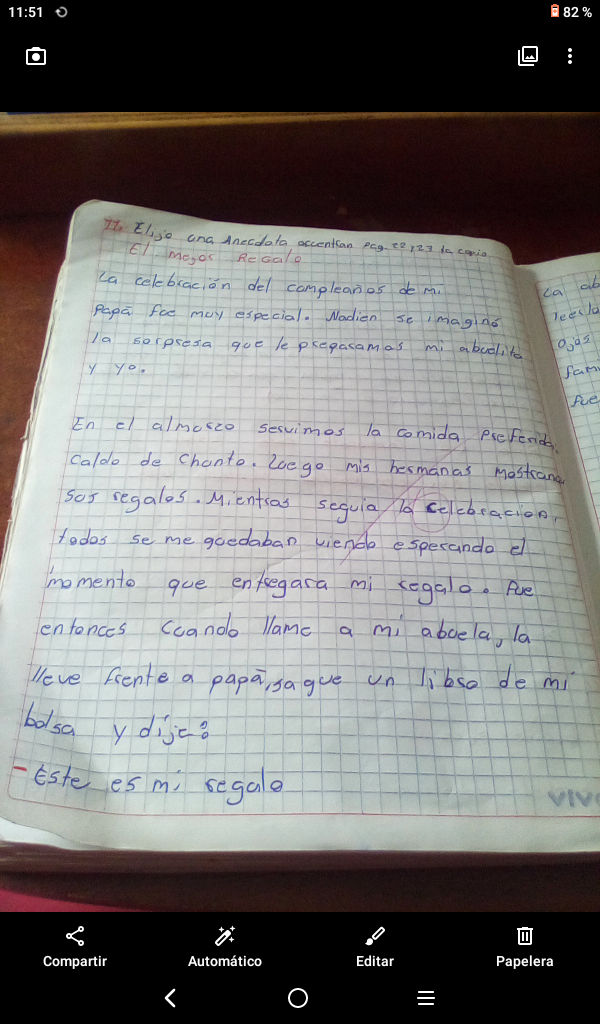 11:51
82 %
11. Elijo una Anecdota occentran Pag. 22, 23 la copio
El mejor Regalo
La celebración del compleaños de mi
Papá fue muy especial. Nadien se imaginó
la sorpresa que le preparamos mi abuelita
y yo.
En el almorzo servimos la comida preferida,
caldo de Chonto. Luego mis hermanas mostraron
sus regalos. Mientras seguia la celebracion,
todos se me quedaban viendo esperando el
momento que entregara mi regalo. Fue
entonces Cuando llame a mi abuela, la
lleve frente a papá, saque un libro de mi
bolsa y dije:
- Este es mi regalo
La ab
leerlo
Ojos
fam
fue
VIVO
Compartir
Automático
Editar
Papelera